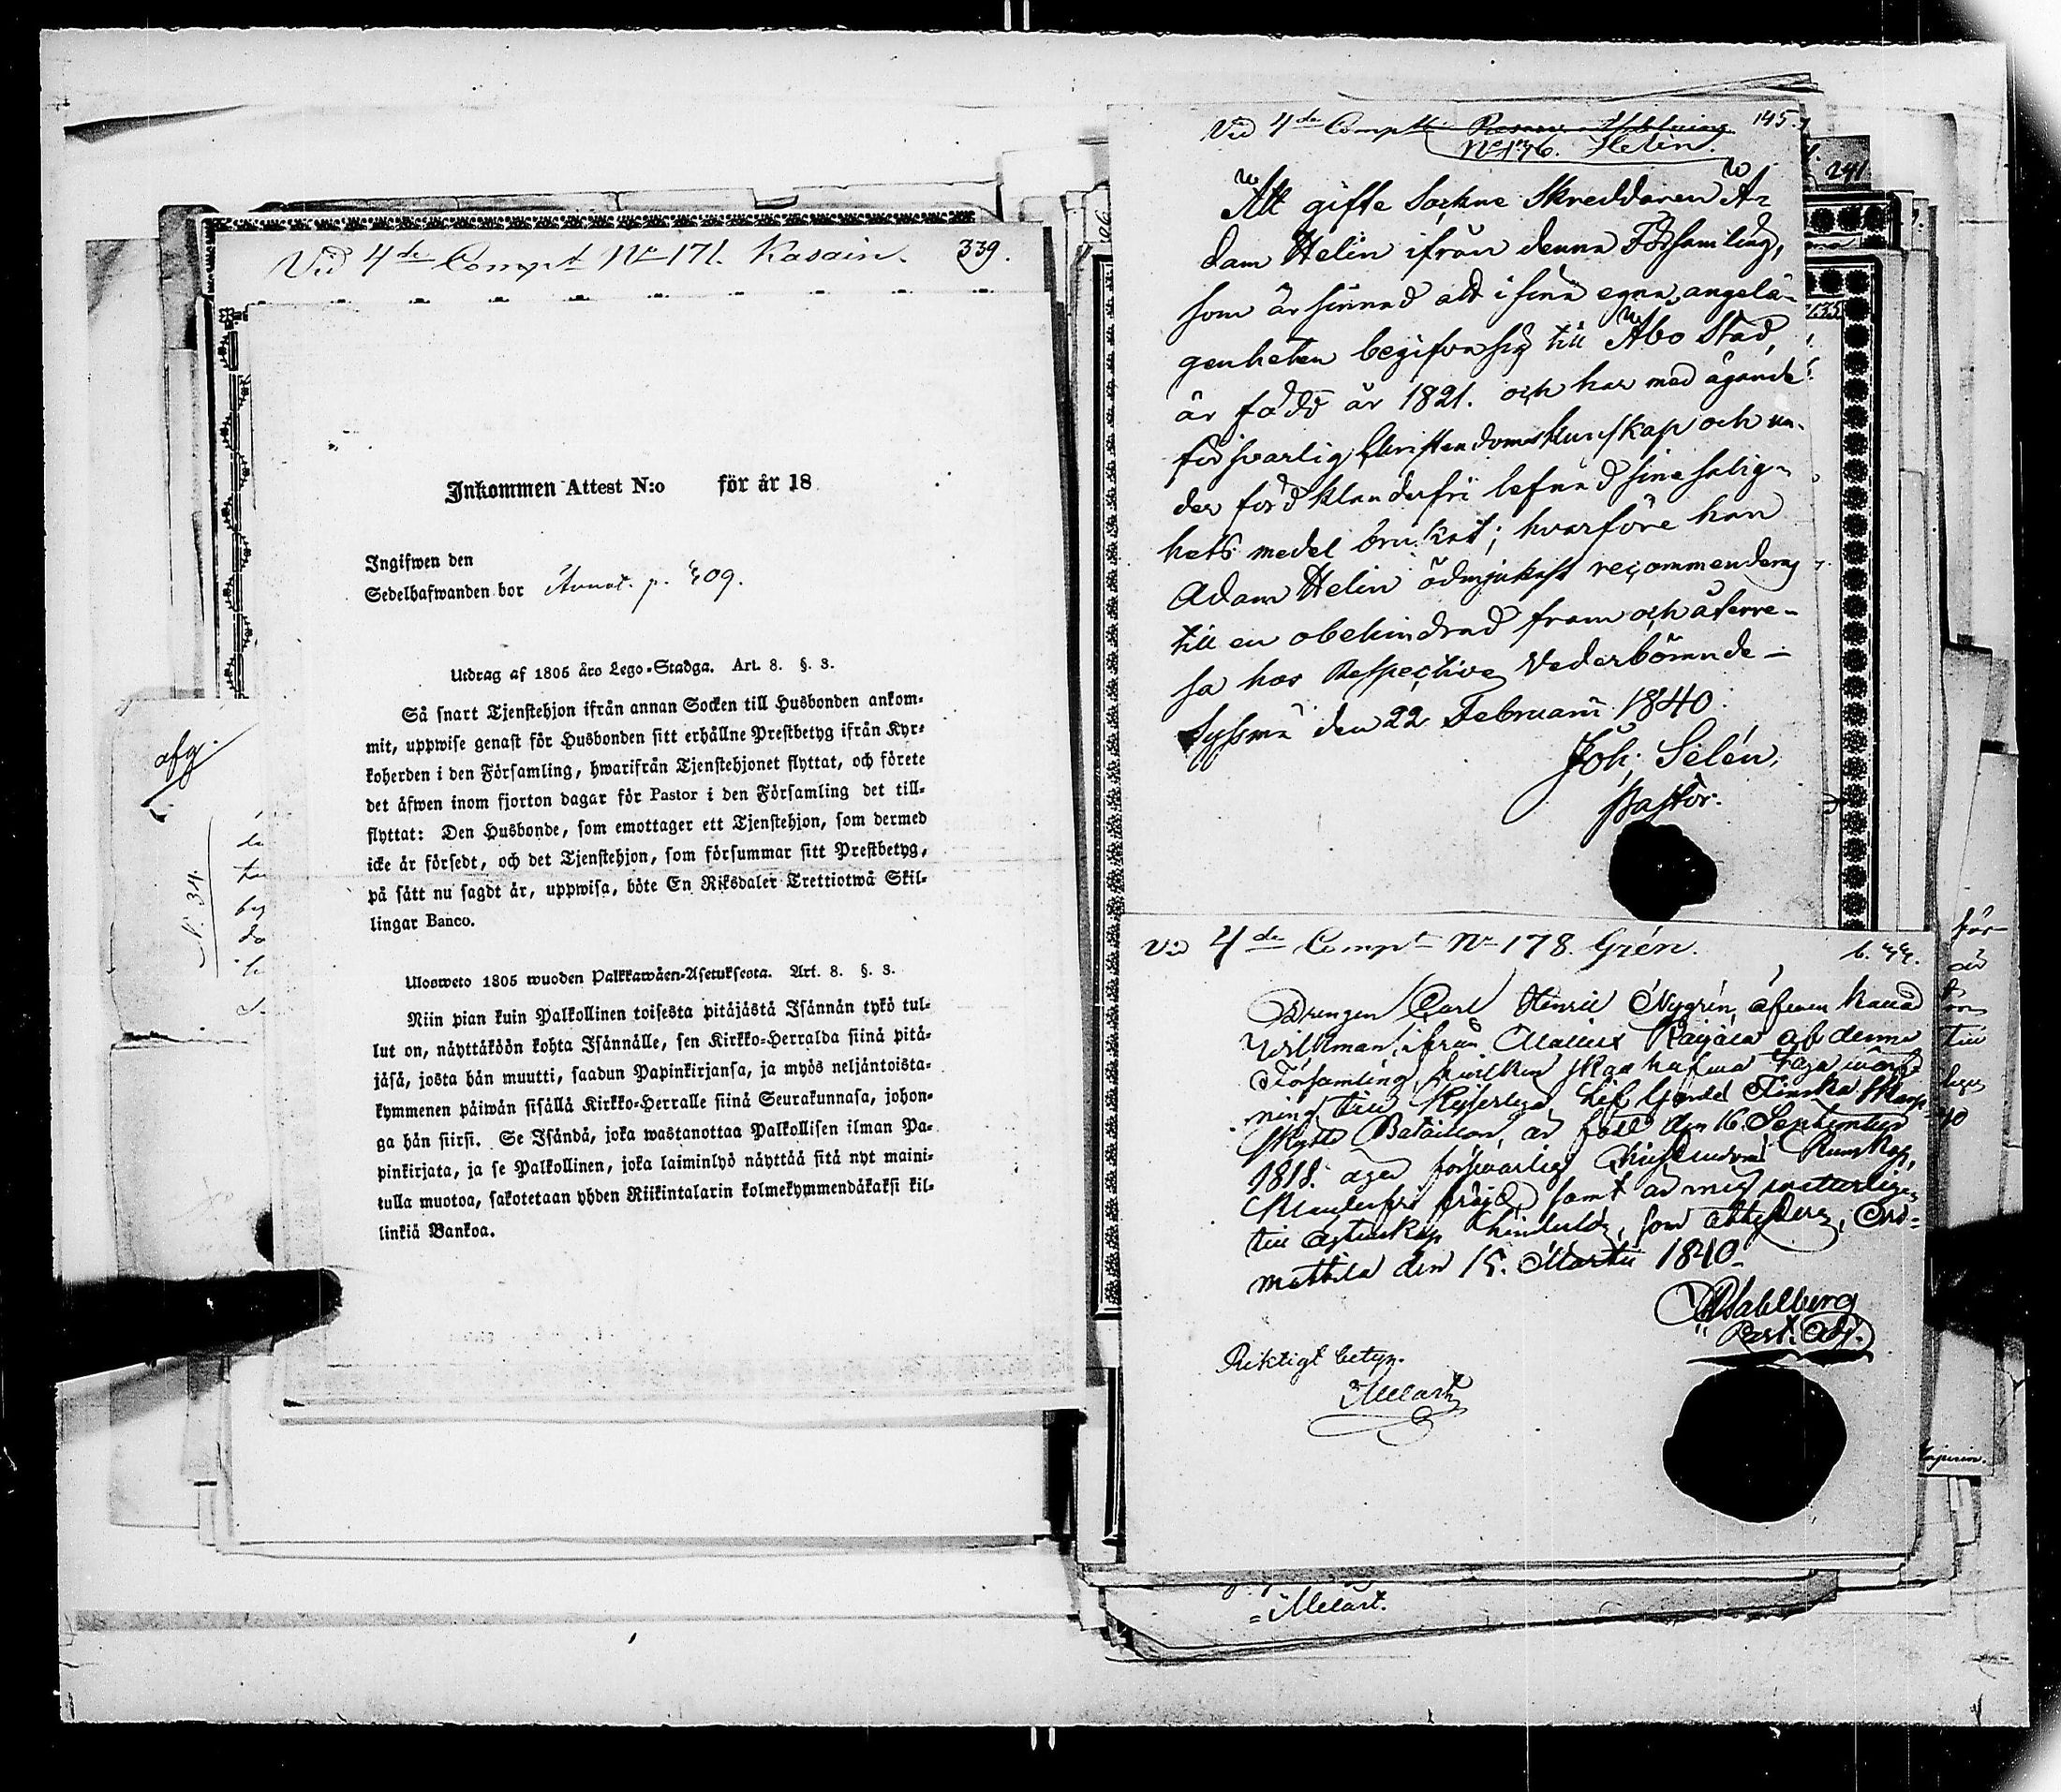 Vid 4de Compt No 171. Kasain. 339.
Inkommen Attest N:o för år 18
Ingifwen den
Sedelhafwanden bor Annot. p. 409.
Utdrag af 1805 års Lego-Stadga. Art. 8. §. 3.
Så snart Tjenstehjon ifrån annan Socken till Husbonden ankom-
mit, uppwise genast för Husbonden sitt erhållne Prestbetyg ifrån Kyr-
koherden i den Församling, hwarifrån Tjenstehjonet flyttat, och förete
det äfwen inom fjorton dagar för Pastor i den Församling det till-
flyttat: Den Husbonde, som emottager ett Tjenstehjon, som dermed
icke är försedt, och det Tjenstehjon, som försummar sitt Prestbetyg,
på sätt nu sagdt är, uppwisa, böte En Riksdaler Trettiotwå Skil-
lingar Banco.
Ulosweto 1805 wuoden Palkkawäen-Asetuksesta. Art. 8. §. 3.
Niin pian kuin Palkollinen toisesta pitäjästä Isännän tykö tul-
lut on, näyttäköön kohta Isännälle, sen Kirkko-Herralda siinä pitä-
jäsä, josta hän muutti, saadun Papinkirjansa, ja myös neljäntoista-
kymmenen päiwän sisällä Kirkko-Herralle siinä Seurakunnasa, johon-
ga hän siirsi. Se Isändä, joka wastanottaa Palkollisen ilman Pa-
pinkirjata, ja se Palkollinen, joka laiminlyö näyttää sitä nyt maini-
tulla muotoa, sakotetaan yhden Riikintalarin kolmekymmendäkaksi kil-
linkiä Bankoa.
afg.
N. 34.
Vid 4de Compt 145.
No 176. Helin.
241
Att gifte Sockne Skreddaren A-
dam Helin ifrån denna Församling,
som är sinnad att i sina egna angelä-
genheter begifva sig till Åbo Stad,
är född år 1821. och har med ägande
försvarlig Christendomskunskap och un-
der förd klanderfri lefnad sine salig-
hets medel brukat; hvarföre han
Adam Helin ödmjukast recommenderas
till en obehindrad fram och återre-
sa hos Respective Vederbörande
Sysmä den 22 Februarii 1840.
Joh. Selén,
Pastor.
Vid 4de Compt No 178. Grén. b. 44.
Drengen Carl Henric Nygrén, äfwen kallad
Willman, ifrån Raijala af denna
Församling hwilken skall hafwa tagit wärf-
ning till Kejserliga Lif Gardes Finska Skarp-
skytte Bataillon, är född den 16 September
1818. äger försvarlig Christendoms Kunskap,
klanderfri frägd, samt är mig witterligen
till Ägtenskap hinderlös, som attesteras, Ori-
mattila den 15. Martii 1840.
Wahlberg
Past. Adj.
Riktigt betyg.
Melart
Melart.